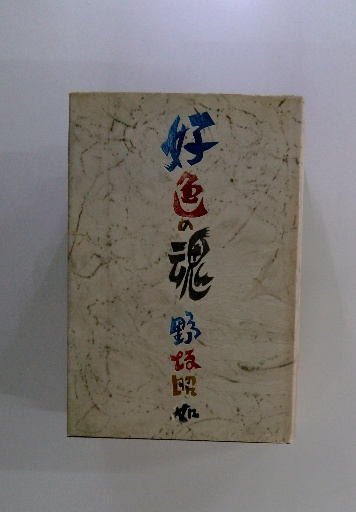 好色の魂
野坂昭如